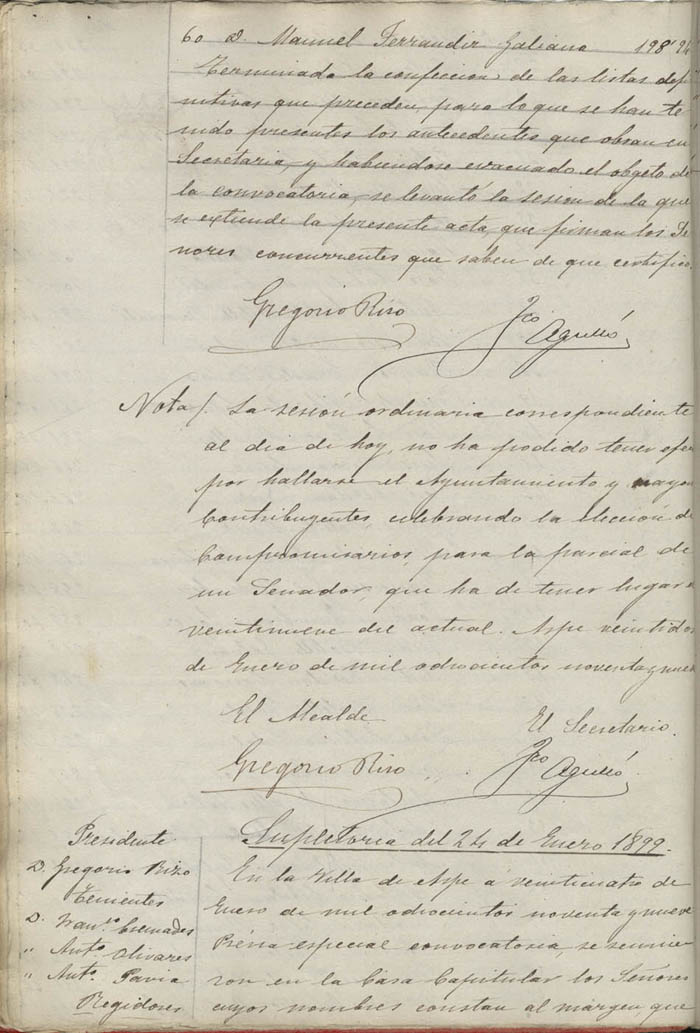 60 D. Manuel Ferrandiz Galiano 198'94
Terminada la confeccion de las listas defi
nitivas que preceden, para lo que se han te
nido presentes los antecedentes que obran en
Secretaria, y habiendose evacuado el obgeto de
la convocatoria, se levantó la sesion de la que
se extiende la presente acta, que firman los Se
ñores concurrentes que saben de que certifico.
Gregorio Rizo
Fco Agulló
Nota/. La sesión ordinaria correspondiente
al dia de hoy, no ha podido tener efec
por hallarse el Ayuntamiento y mayor
Contribuyentes, celebrando la elección de
Compromisarios, para la parcial de
un Senador, que ha de tener lugar
veintinueve del actual. Aspe veintidos
de Enero de mil ochocientos noventa y nueve
El Alcalde
El Secretario.
Gregorio Rizo
Fco Agulló
Presidente
D. Gregorio Rizo
Tenientes
D. Franco Cremades
" Anto. Olivares
" Anto. Pavia
Regidores
Supletoria del 24 de Enero 1899.
En la Villa de Aspe á veinticuatro de
Enero de mil ochocientos noventa y nueve
Prévia especial convocatoria, se reunie
ron en la Casa Capitular los Señores
cuyos nombres constan al margen, que